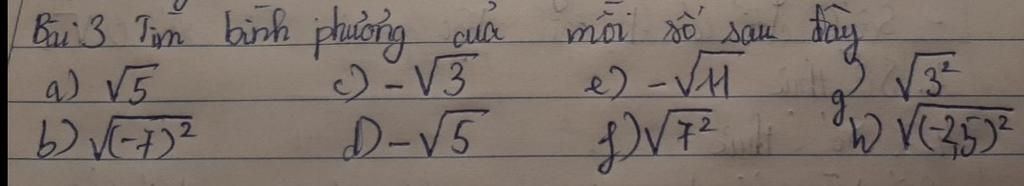 Bài 3 Tìm bình phương của mỗi số sau đây
a) √5 c) -√3 e) -√11 g) √3²
b) √(-7)² d) -√5 f) √7² h) √(-2,5)²